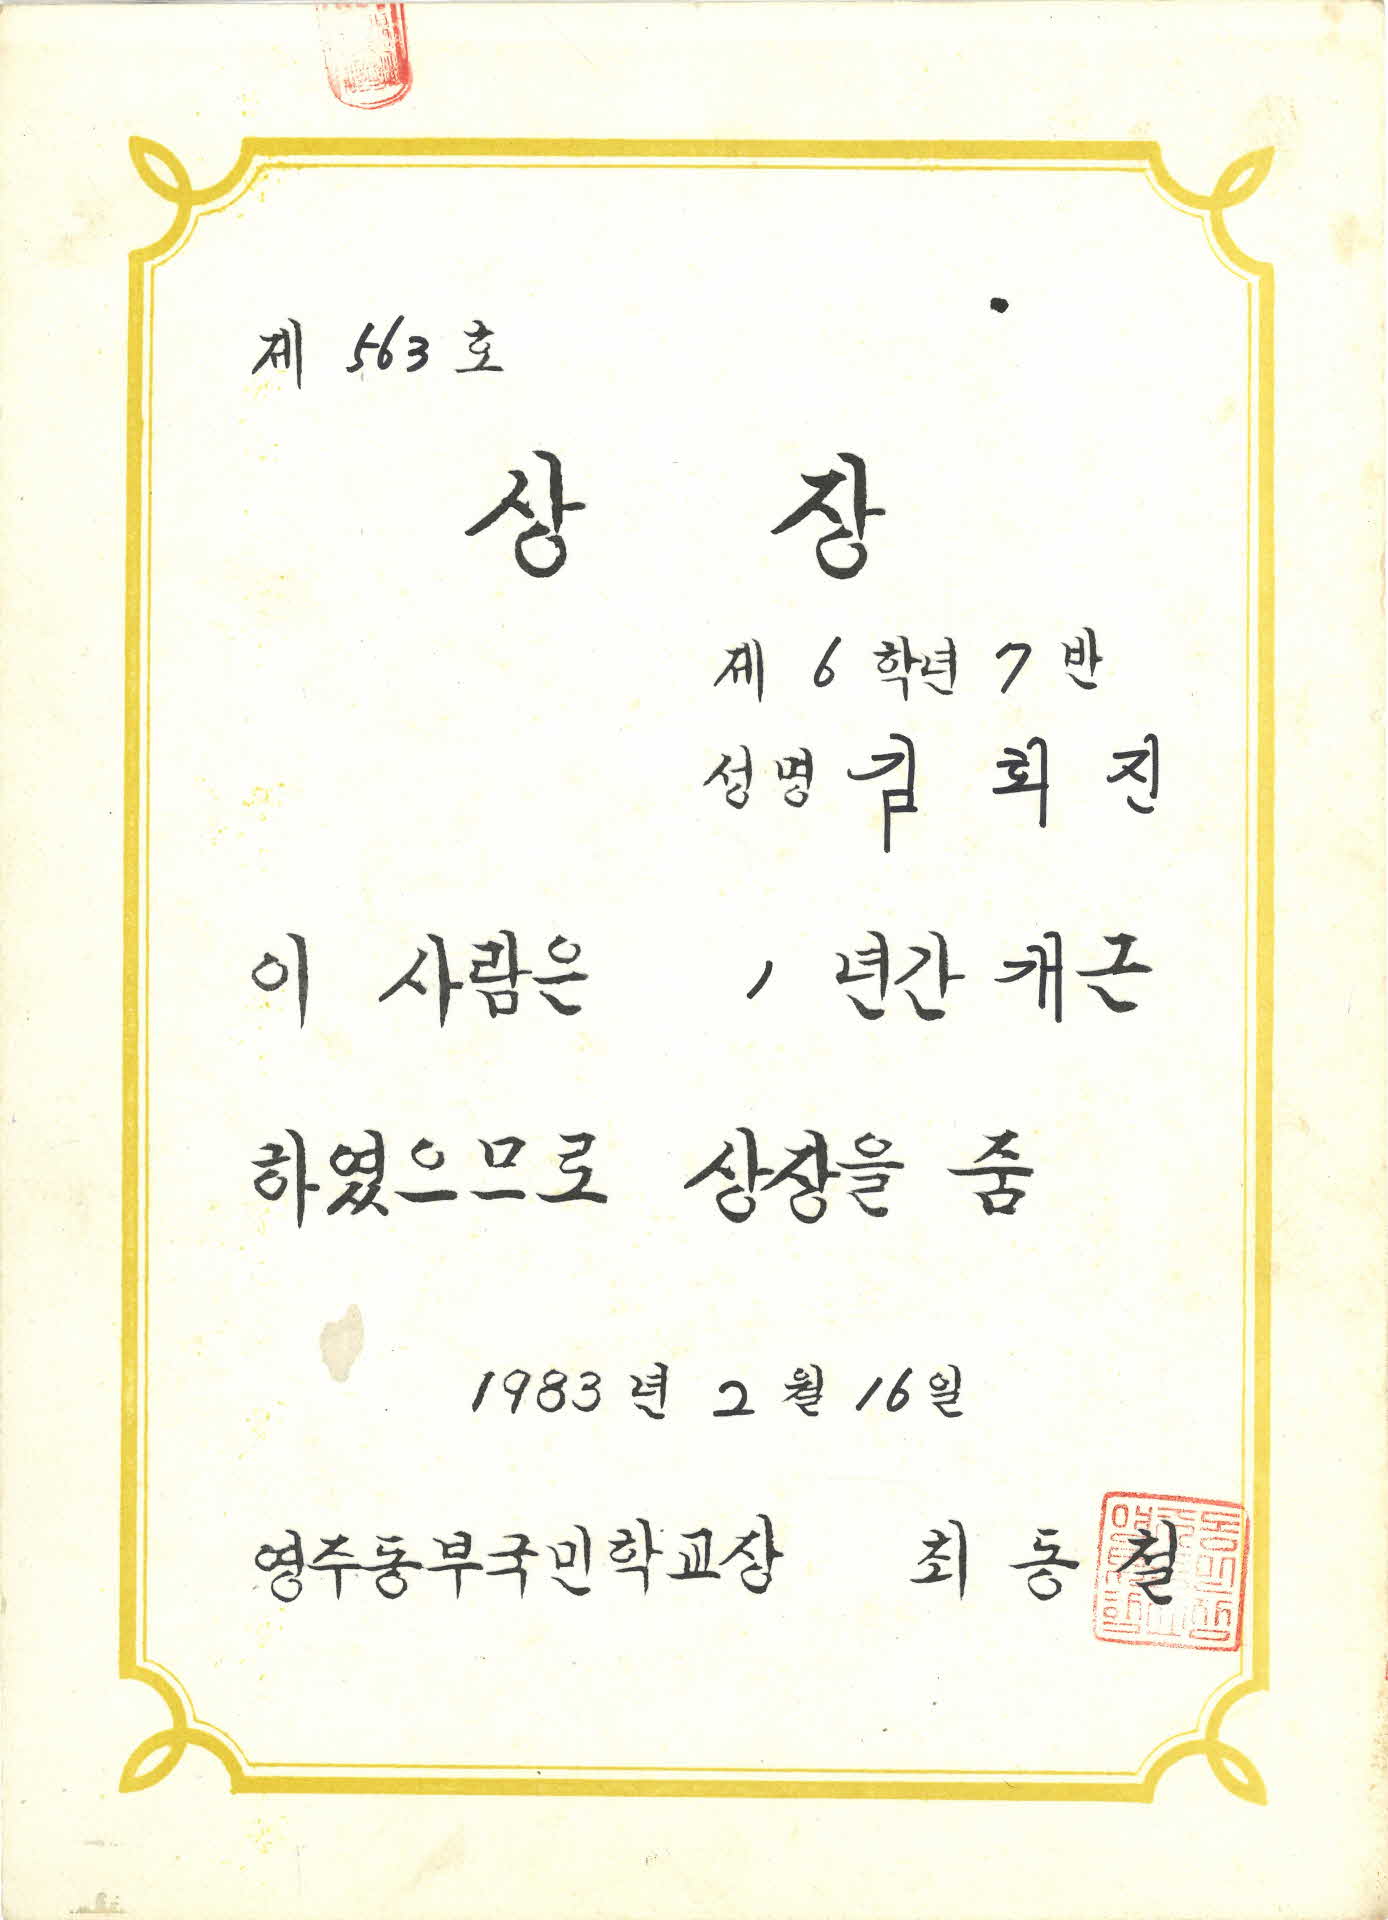 제 563 호
상 장
제 6 학년 7 반
성명 김 회 진
이 사람은 1 년간 개근
하였으므로 상장을 줌
1983 년 2 월 16 일
영주동부국민학교장 최 동 철